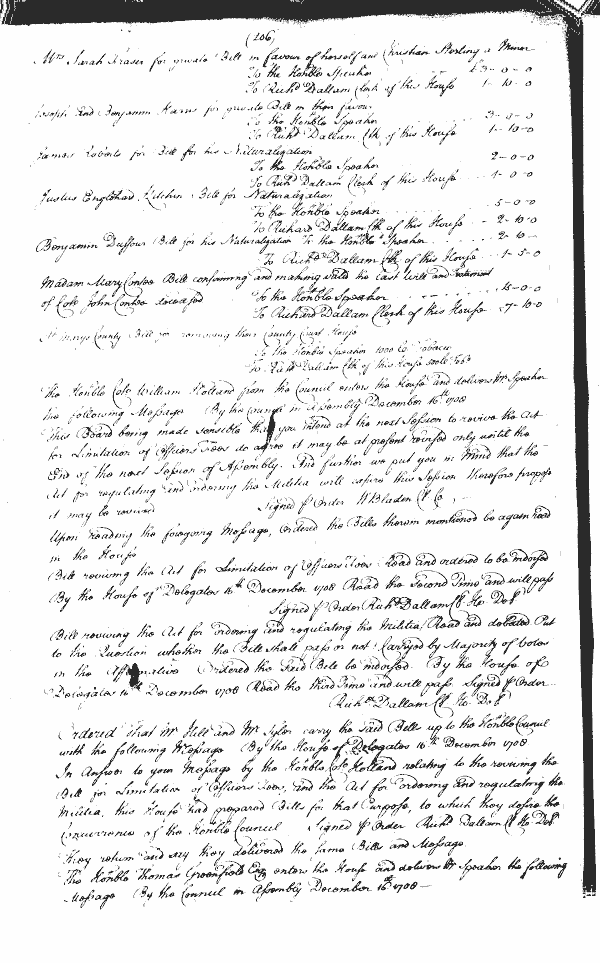 (106)
Mrs Sarah Fraser for private Bill in favour of herself and Christian Sterling a Minor
To the Honble Speaker £3-0-0
To Richd Dallam Clerk of this House 1-10-0
Joseph and Benjamin for private Bill in their favour
To the Honble Speaker 3-0-0
To Richd Dallam Clk of this House 1-10-0
James Roberts for Bill for his Naturalization
To the Honble Speaker 2-0-0
To Richd Dallam Clerk of this House 1-0-0
Justus Englehard Kitchin Bill for Naturalization
To the Honble Speaker 5-0-0
To Richard Dallam Clk of this House 2-10-0
Benjamin Duffour Bill for his Naturalization To the Honble Speaker 2-10-
To Richd Dallam Clk of this House 1-5-0
Madam Mary Contee Bill confirming and making valid the Last Will and Testament
of Colo John Contee deceased To the Honble Speaker 15-0-0
To Richard Dallam Clerk of this House 7-10-0
St Marys County Bill for removing their County Court House
To the Honble Speaker 1000 lb Tobacco
To Richd Dallam Clk of this House 500lb Tobo
The Honble Colo William Holland from the Council enters the House and delivers Mr Speaker
the following Message By the Council in Assembly December 16th 1708
This Board being made sensible that you intend at the next Session to revive the Act
for Limitation of Officers Fees do agree it may be at present revised only until the
End of the next Session of Assembly. And further we put you in Mind that the
Act for regulating and ordering the Militia will expire this Session therefore propose
it may be revived Signed p Order W Bladen Cl Co
Upon Reading the foregoing Message, Ordered the Bills therein mentioned be again read
in the House
Bill reviving the Act for Limitation of Officers Fees Read and ordered to be indorsed
By the House of Delegates 16th December 1708 Read the Second Time and will pass
Signed p Order Richd Dallam Cl Ho Del
Bill reviving the Act for ordering and regulating the Militia Read and debated Put
to the Question whether the Bill shall pass or not. Carryed by Majority of Votes
in the Affirmative Ordered the said Bill be indorsed By the House of
Delegates 16th December 1708 Read the third Time and will pass Signed p Order
Richd Dallam Cl Ho Del
Ordered that Mr Hill and Mr Tyler carry the said Bills up to the Honble Council
with the following Message By the House of Delegates 16th December 1708
In Answer to your Message by the Honble Colo Holland relating to the reviving the
Bill for Limitation of Officers Fees, and the Act for ordering and regulating the
Militia, this House had prepared Bills for that Purpose, to which they desire the
Concurrence of the Honble Council Signed p Order Richd Dallam Cl Ho Del
They return and say they delivered the same Bills and Message.
The Honble Thomas Greenfield Esq enters the House and delivers Mr Speaker the following
Message By the Council in Assembly December 16th 1708